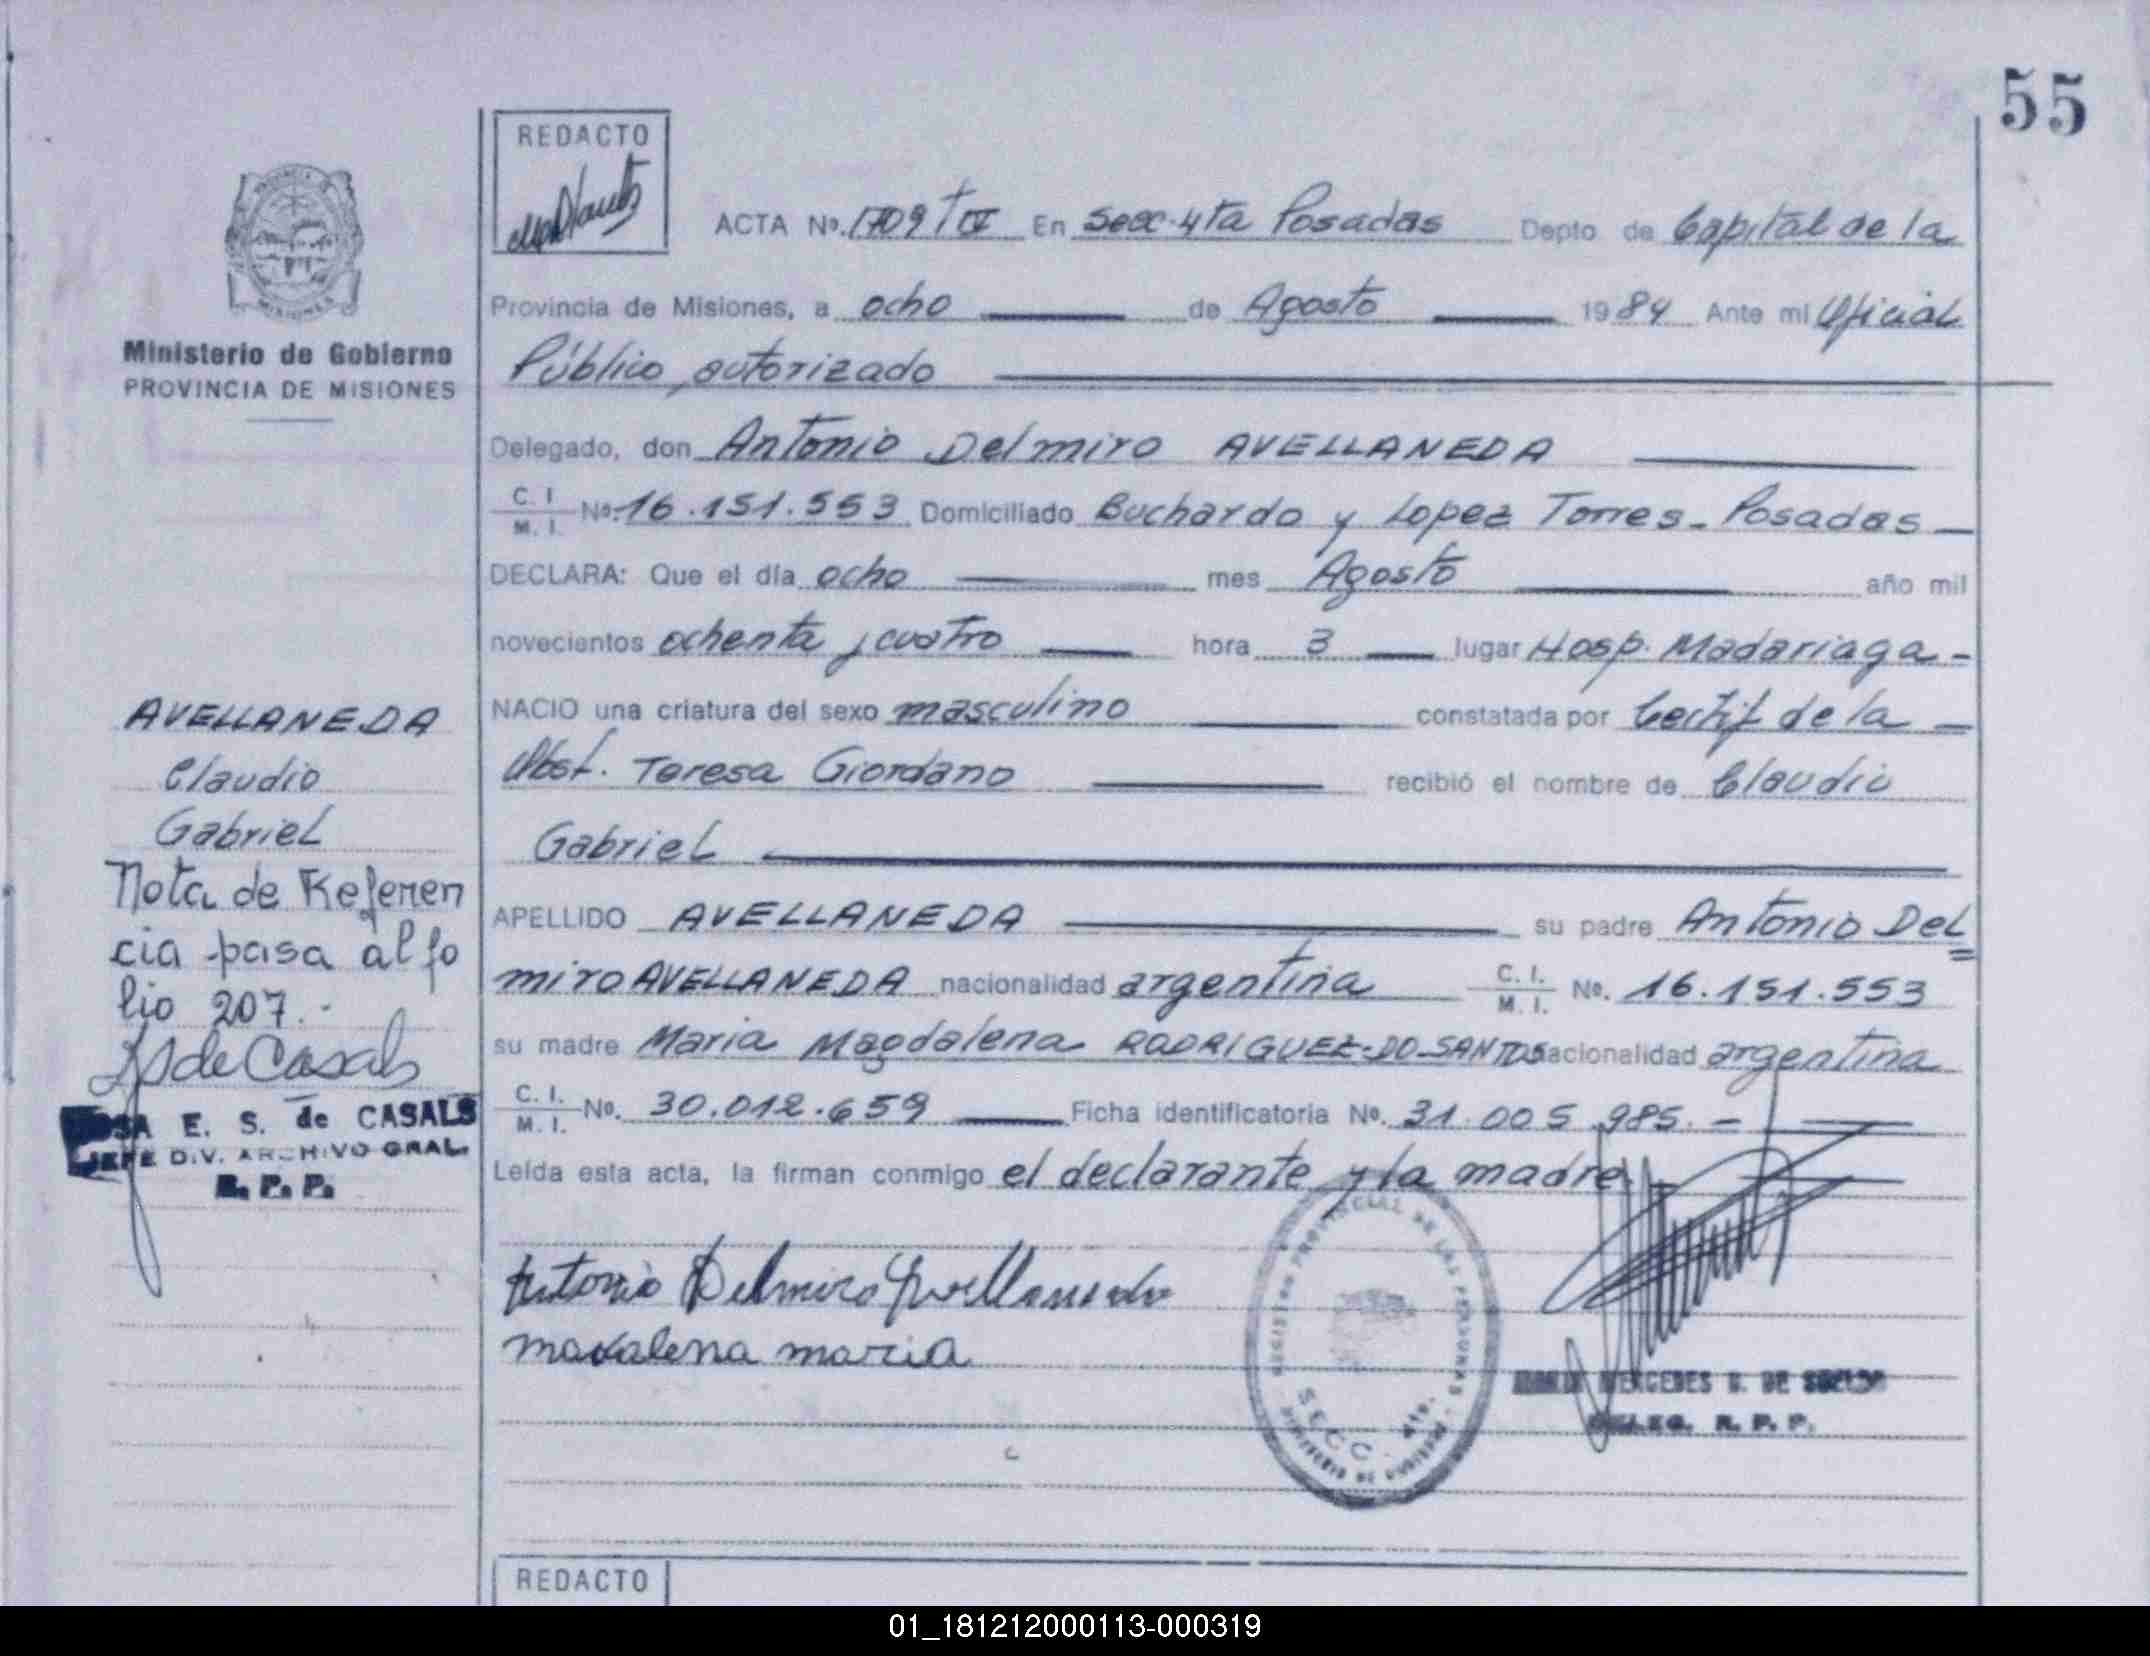 55
REDACTO
ACTA Nº. 1709 T IV En Secc. 4ta Posadas Depto de Capital de la
Provincia de Misiones, a ocho de Agosto 1984 Ante mi Oficial
Público autorizado
Delegado, don Antonio Delmiro AVELLANEDA
C. I. M. I. Nº. 16.151.553 Domiciliado Buchardo y Lopez Torres - Posadas
DECLARA: Que el día ocho mes Agosto año mil
novecientos ochenta y cuatro hora 3 lugar Hosp. Madariaga -
NACIO una criatura del sexo masculino constatada por Certif de la
Obst. Teresa Giordano recibió el nombre de Claudio
Gabriel
APELLIDO AVELLANEDA su padre Antonio Del
miro AVELLANEDA nacionalidad argentina C. I. M. I. Nº. 16.151.553
su madre Maria Magdalena RODRIGUEZ-DO-SANTOS nacionalidad argentina
C. I. M. I. Nº. 30.012.659 Ficha identificatoria Nº. 31.005.985.-
Leída esta acta, la firman conmigo el declarante y la madre.
Antonio Delmiro Avellaneda
madalena maria
MERCEDES
DELEG. R. P. P.
REGISTRO PROVINCIAL DE LAS PERSONAS
SECC. 4ta.
MINISTERIO DE GOBIERNO
PROVINCIA DE
MISIONES
Ministerio de Gobierno
PROVINCIA DE MISIONES
AVELLANEDA
Claudio
Gabriel
Nota de Referen
cia pasa al fo
lio 207.-
de Casals
ROSA E. S. de CASALS
JEFE DIV. ARCHIVO GRAL.
R. P. P.
REDACTO
01_181212000113-000319